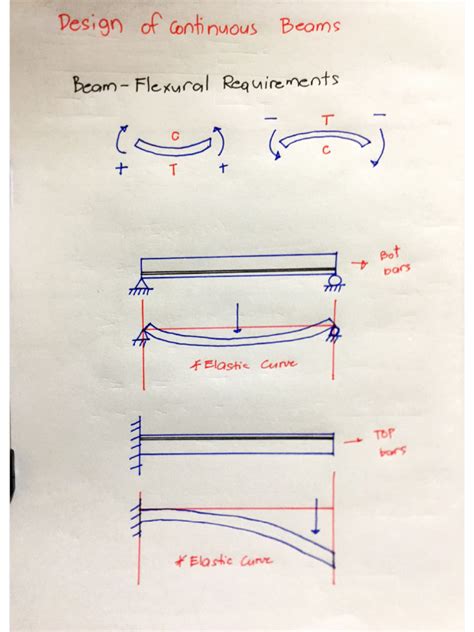 Design of Continuous Beams
Beam - Flexural Requirements
C
+ T +
- T -
C
→ Bot
bars
* Elastic Curve
→ TOP
bars
* Elastic Curve